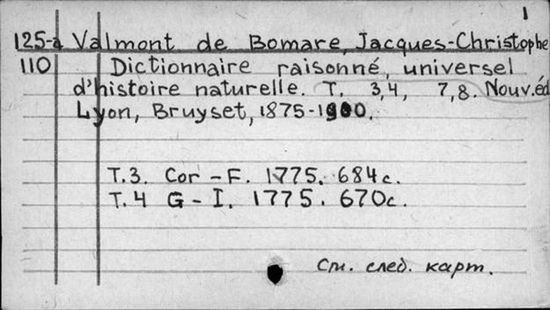 1
125-а Valmont de Bomare, Jacques-Christophe
110 Dictionnaire raisonné, universel
d'histoire naturelle. T. 3,4, 7,8. Nouv.éd
Lyon, Bruyset, 1875-1900.
T.3. Cor - F. 1775. 684c.
T.4 G - I. 1775. 670c.
См. след. карт.